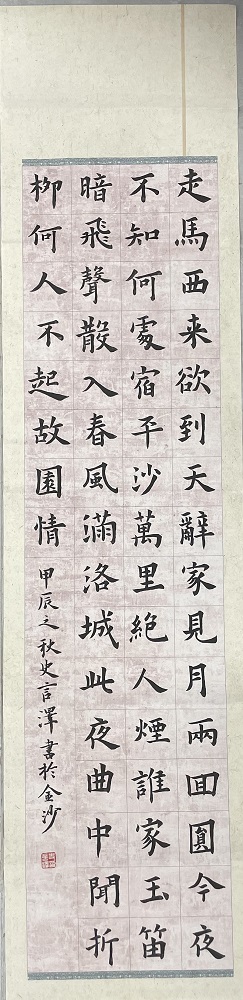 走馬西来欲到天辭家見月兩回圓今夜
不知何處宿平沙萬里絕人煙誰家玉笛
暗飛聲散入春風滿洛城此夜曲中聞折
柳何人不起故園情
甲辰之秋史言澤書於金沙